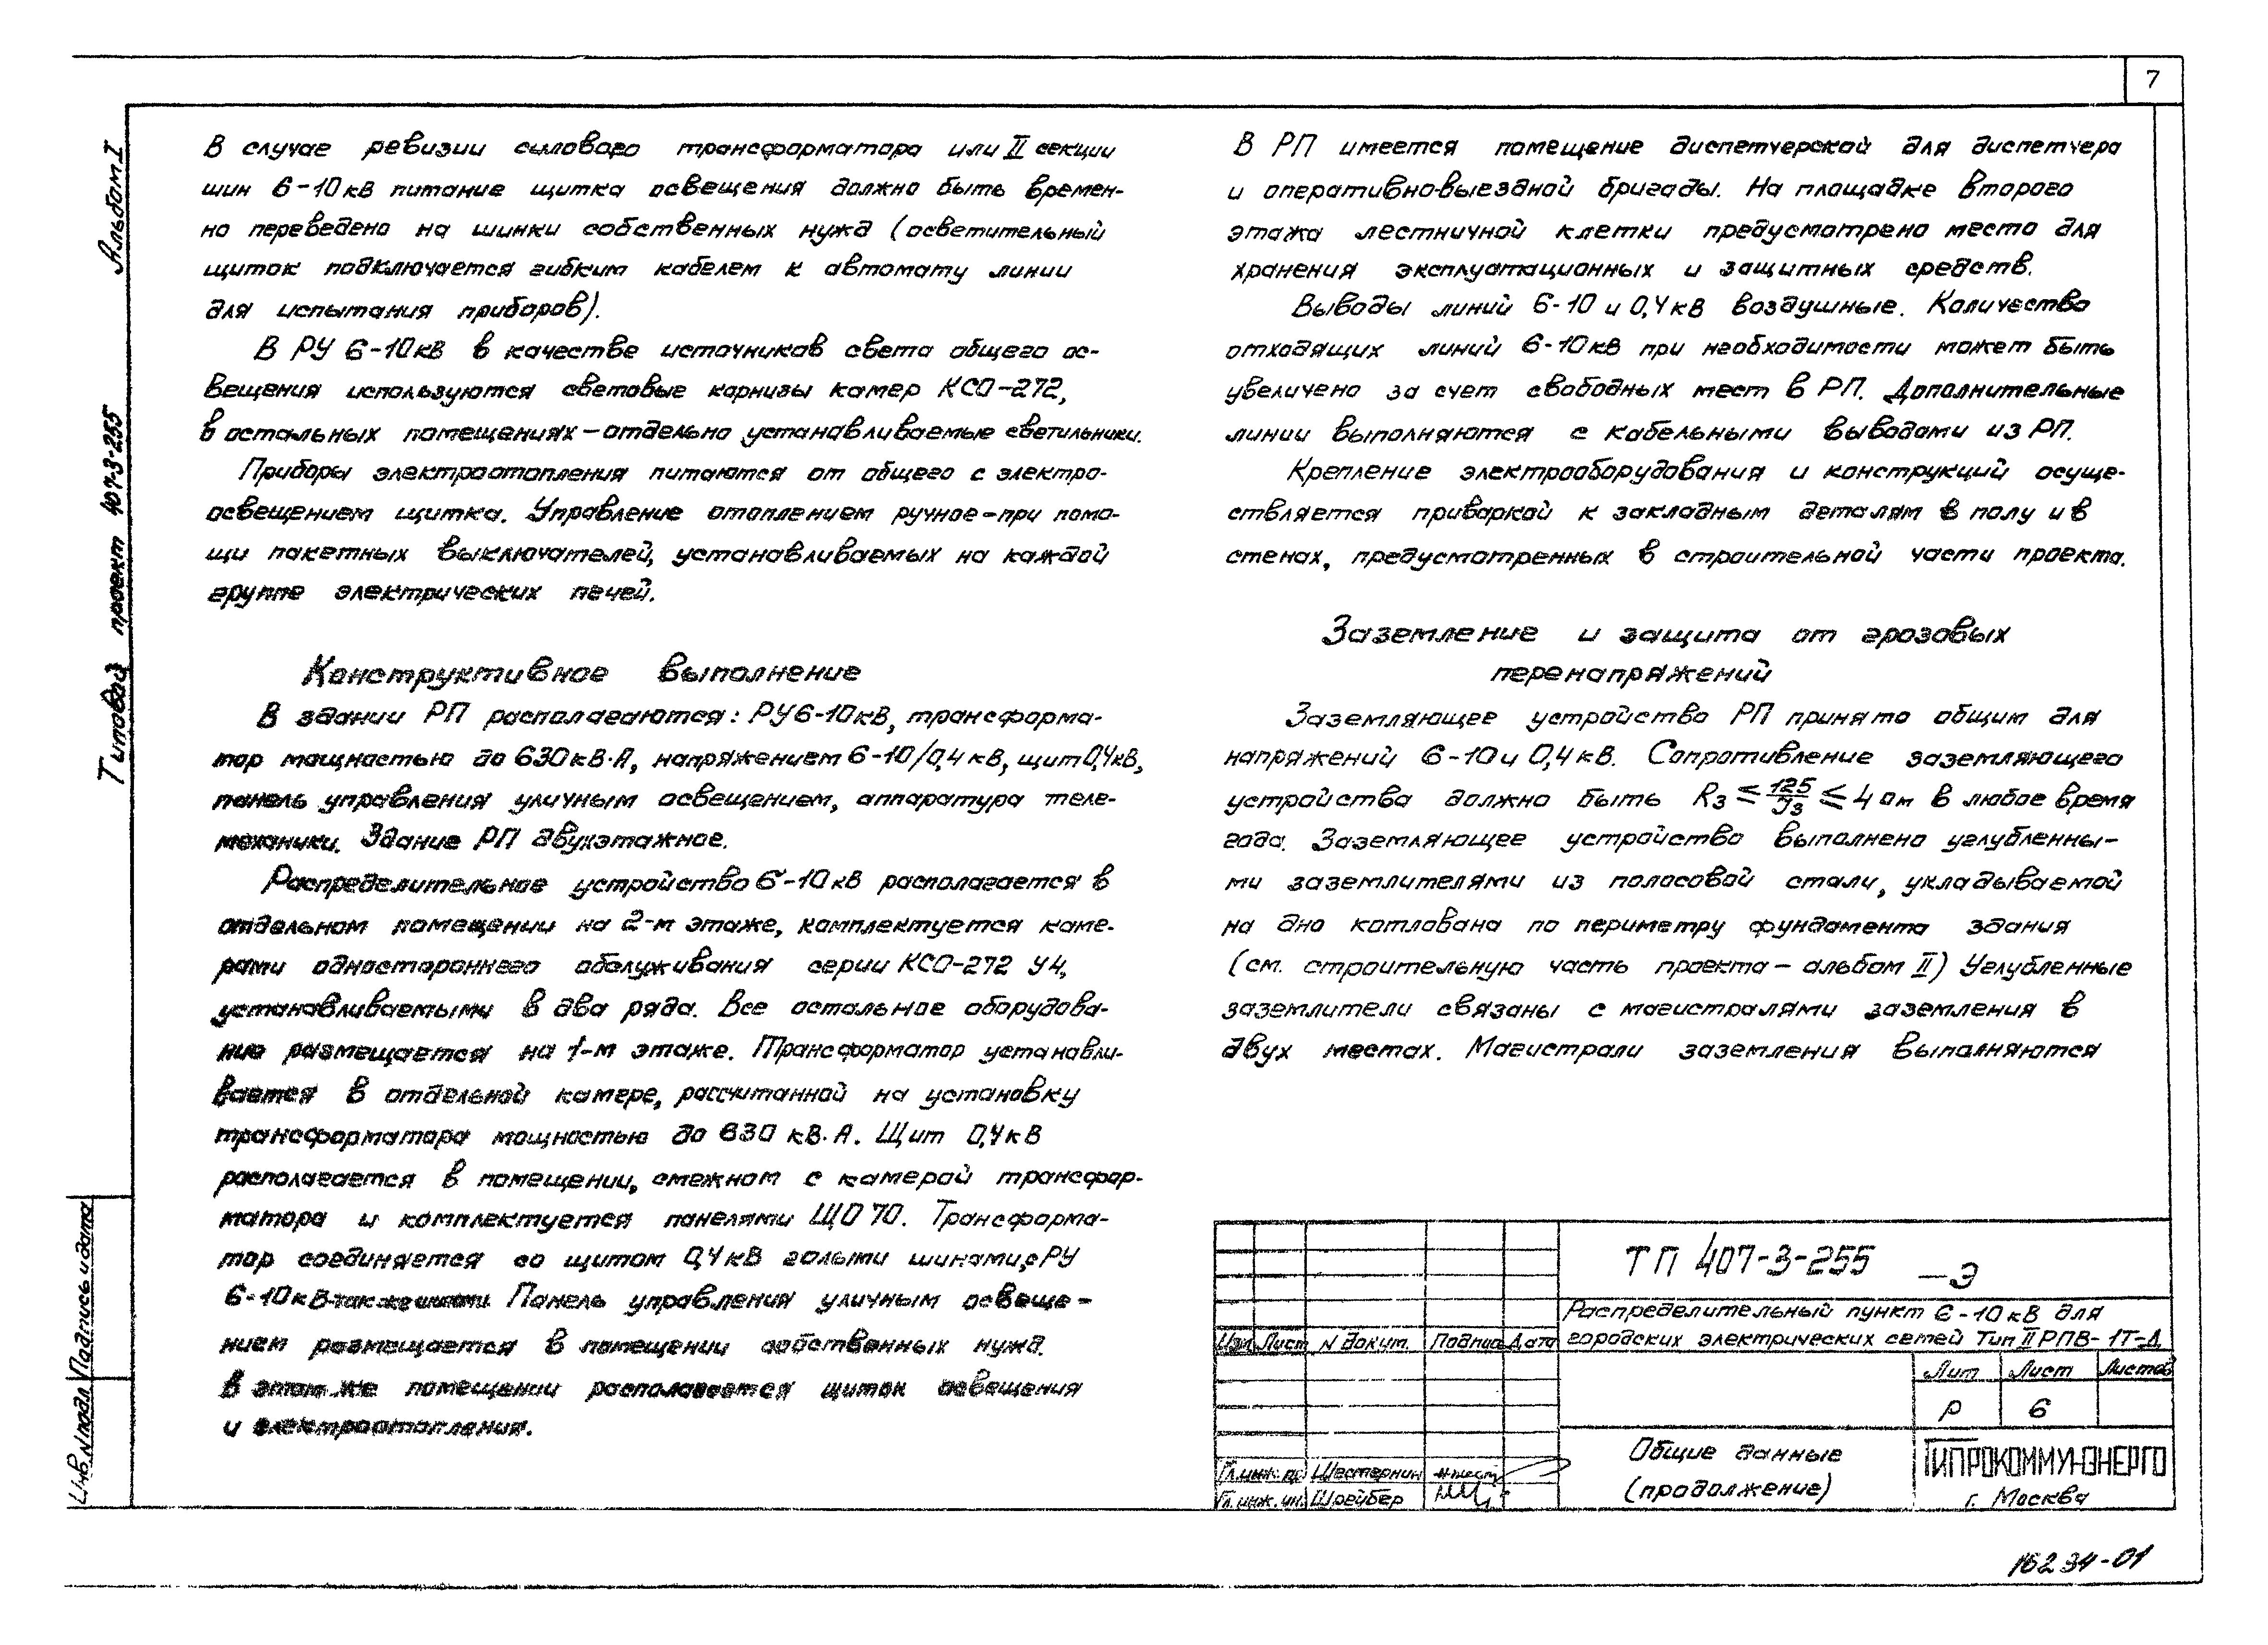 7
В случае ревизии силового трансформатора или II секции
шин 6-10кВ питание щитка освещения должно быть времен-
но переведено на шинки собственных нужд (осветительный
щиток подключается гибким кабелем к автомату линии
для испытания приборов).
В РУ 6-10кВ в качестве источников света общего ос-
вещения используются световые карнизы камер КСО-272,
в остальных помещениях-отдельно устанавливаемые светильники.
Приборы электроотопления питаются от общего с электро-
освещением щитка. Управление отоплением ручное-при помо-
щи пакетных выключателей, устанавливаемых на каждой
группе электрических печей.
Конструктивное выполнение
В здании РП располагаются: РУ6-10кВ, трансформа-
тор мощностью до 630кВ·А, напряжением 6-10/0,4кВ, щит 0,4кВ,
панель управления уличным освещением, аппаратура теле-
механики. Здание РП двухэтажное.
Распределительное устройство 6-10кВ располагается в
отдельном помещении на 2-м этаже, комплектуется каме-
рами одностороннего обслуживания серии КСО-272 У4,
устанавливаемыми в два ряда. Все остальное оборудова-
ние размещается на 1-м этаже. Трансформатор устанавли-
вается в отдельной камере, рассчитанной на установку
трансформатора мощностью до 630 кВ·А. Щит 0,4кВ
располагается в помещении, смежном с камерой трансфор-
матора и комплектуется панелями ЩО 70. Трансформа-
тор соединяется со щитом 0,4кВ голыми шинами, с РУ
6-10кВ-также шинами. Панель управления уличным освеще-
нием размещается в помещении собственных нужд.
В этом же помещении располагается щиток освещения
и электроотопления.
В РП имеется помещение диспетчерской для диспетчера
и оперативно-выездной бригады. На площадке второго
этажа лестничной клетки предусмотрено место для
хранения эксплуатационных и защитных средств.
Выводы линий 6-10 и 0,4кВ воздушные. Количество
отходящих линий 6-10кВ при необходимости может быть
увеличено за счет свободных мест в РП. Дополнительные
линии выполняются с кабельными выводами из РП.
Крепление электрооборудования и конструкций осуще-
ствляется приваркой к закладным деталям в полу и в
стенах, предусмотренных в строительной части проекта.
Заземление и защита от грозовых
перенапряжений
Заземляющее устройство РП принято общим для
напряжений 6-10 и 0,4кВ. Сопротивление заземляющего
устройства должно быть Rз ≤ 125/Jз ≤ 4 ом в любое время
года. Заземляющее устройство выполнено углубленны-
ми заземлителями из полосовой стали, укладываемой
на дно котлована по периметру фундамента здания
(см. строительную часть проекта-альбом II) Углубленные
заземлители связаны с магистралями заземления в
двух местах. Магистрали заземления выполняются
Типовой проект 407-3-255 Альбом I
Инв. N подл. Подпись и дата
ТП 407-3-255 -Э
Распределительный пункт 6-10кВ для
городских электрических сетей Тип II РПВ-1Т-Д
Изм Лист N докум. Подпись Дата
Лит Лист Листов
Р 6
Общие данные
(продолжение)
ГИПРОКОММУНЭНЕРГО
г. Москва
Гл. инж. пр. Шестернин
Гл. инж. ин. Шрейбер
16294-01